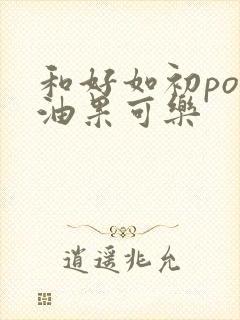 和好如初po
油果可樂
逍遥兆允